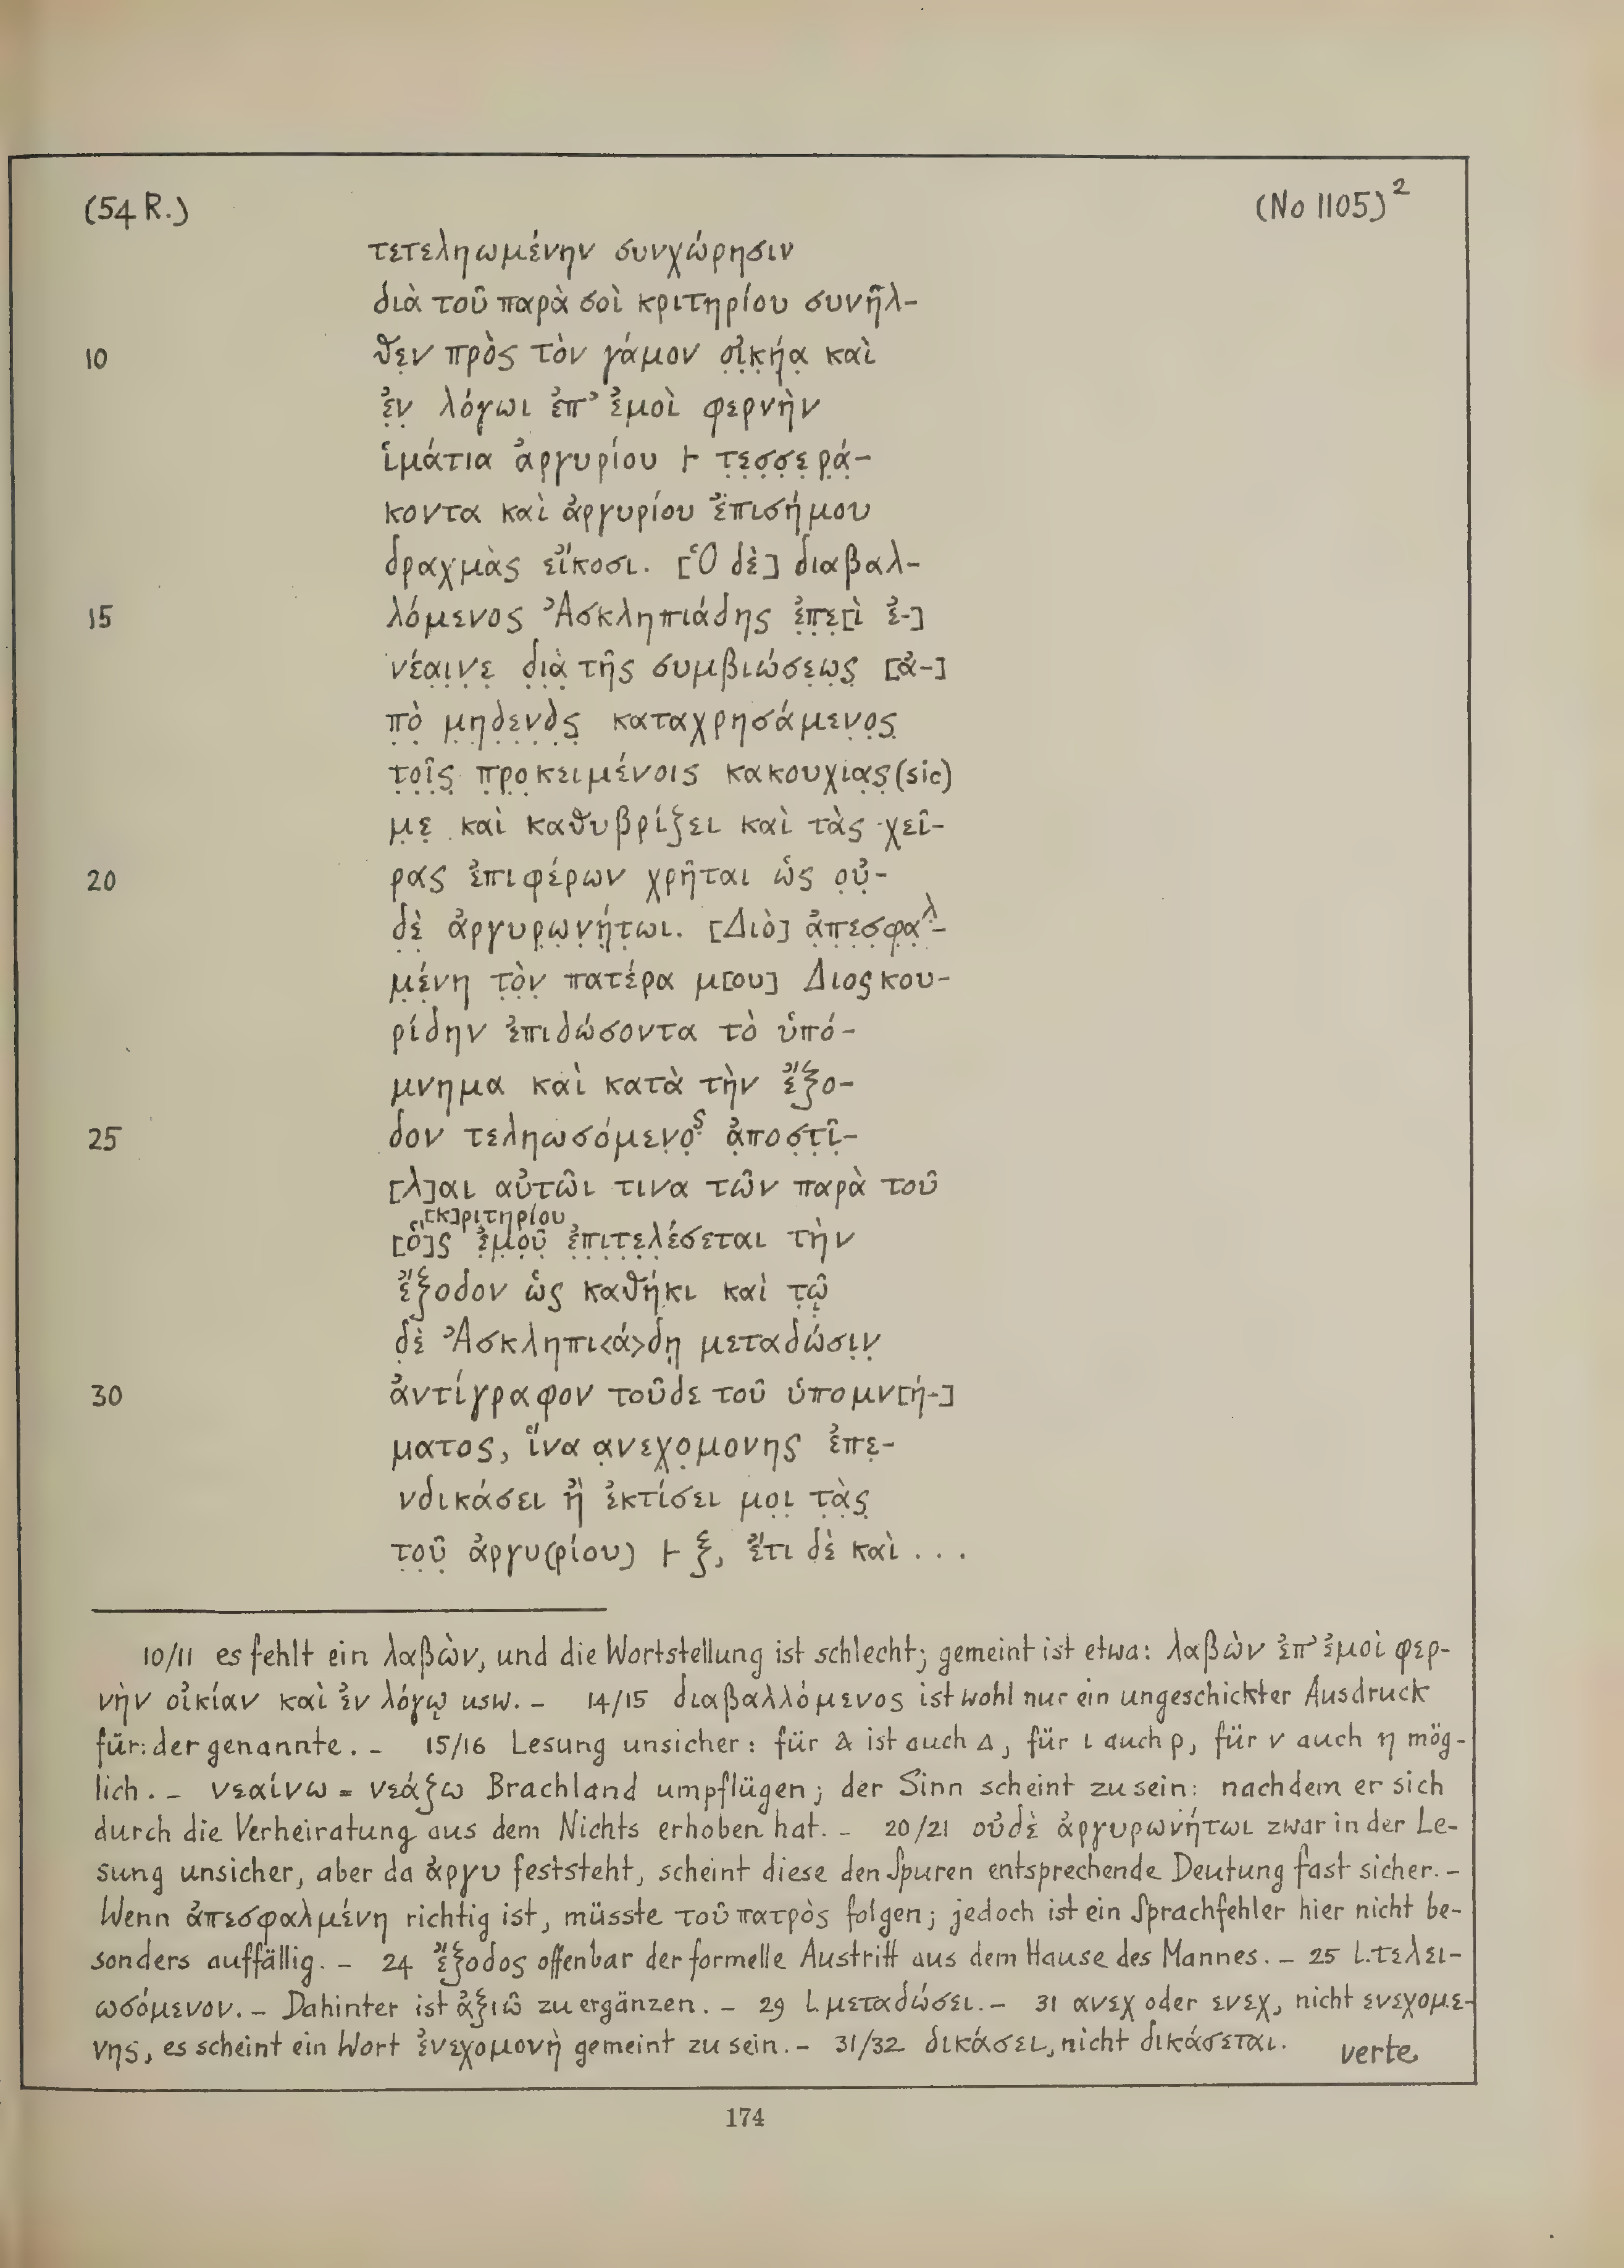 (54 R.) (No 1105)²
τετεληωμένην συνχώρησιν
διὰ τοῦ παρὰ σοὶ κριτηρίου συνῆλ-
10 θ̣ε̣ν πρὸς τὸν γάμον ο̣ἰ̣κ̣ή̣α̣ καὶ
ἐ̣ν̣ λόγωι ἐπ᾽ ἐμοὶ φερνὴν
ἱμάτια ἀργυρίου ⊢ τ̣ε̣σ̣σ̣ε̣ρ̣ά̣-
κοντα καὶ ἀργυρίου ἐπισήμου
δραχμὰς εἴκοσι. [Ὁ δὲ] διαβαλ-
15 λόμενος Ἀσκληπιάδης ἐ̣π̣ε̣[ὶ ἐ-]
νέα̣ι̣ν̣ε̣ δ̣ι̣ὰ̣ τῆς συμβιώσε̣ω̣ς̣ [ἀ-]
π̣ὸ̣ μ̣η̣δ̣ε̣ν̣ὸ̣ς̣ καταχρησάμεν̣ο̣ς̣
τ̣ο̣ῖ̣ς̣ π̣ρ̣ο̣κειμένοις κακουχια̣ς̣ (sic)
μ̣ε̣ καὶ καθυβρίζει καὶ τὰς χεῖ-
20 ρας ἐπιφέρων χρῆται ὡς ο̣ὐ̣-
δ̣ὲ̣ ἀργυρ̣ω̣ν̣ή̣τ̣ωι. [Διὸ] ἀ̣π̣ε̣σ̣φ̣α̣λ-
μ̣έ̣νη τ̣ὸ̣ν̣ πατέρα μ[ου] Διοςκου-
ρίδην ἐπιδώσοντα τὸ ὑπό-
μνημα καὶ κατὰ τὴν ἔξο-
25 δον τεληωσόμεν̣ο̣ς̣ ἀ̣πο̣σ̣τ̣ῖ̣-
[λ]αι αὐτῶι τινα τῶν παρὰ τοῦ
[κ]ριτηρίου
[ὅ]ς ἐ̣μ̣ο̣ῦ̣ ἐ̣π̣ι̣τ̣ε̣λ̣έσεται τὴν
ἔξοδον ὡς καθήκι καὶ τ̣ῷ̣
δ̣ὲ Ἀσκληπι<ά>δῃ μεταδώσι̣ν̣
30 ἀντίγραφον τοῦδε τοῦ ὑπομν[ή-]
ματος, ἵνα α̣νεχ̣ο̣μονης ἐπε̣-
νδικάσει ἢ ἐκτίσει μ̣ο̣ι̣ τ̣ὰ̣ς̣
τ̣ο̣ῦ̣ ἀργυ(ρίου) ⊢ ξ, ἔτι δὲ καὶ . . .
10/11 es fehlt ein λαβὼν, und die Wortstellung ist schlecht; gemeint ist etwa: λαβὼν ἐπ᾽ ἐμοὶ φερ-
νὴν οἰκίαν καὶ ἐν λόγῳ usw. – 14/15 διαβαλλόμενος ist wohl nur ein ungeschickter Ausdruck
für: der genannte. – 15/16 Lesung unsicher: für λ ist auch Δ, für ι auch ρ, für ν auch η mög-
lich. – νεαίνω = νεάζω Brachland umpflügen; der Sinn scheint zu sein: nachdem er sich
durch die Verheiratung aus dem Nichts erhoben hat. – 20/21 οὐδὲ ἀργυρωνήτωι zwar in der Le-
sung unsicher, aber da ἀργυ feststeht, scheint diese den Spuren entsprechende Deutung fast sicher. –
Wenn ἀπεσφαλμένη richtig ist, müsste τοῦ πατρὸς folgen; jedoch ist ein Sprachfehler hier nicht be-
sonders auffällig. – 24 ἔξοδος offenbar der formelle Austritt aus dem Hause des Mannes. – 25 l. τελει-
ωσόμενον. – Dahinter ist ἀξιῶ zu ergänzen. – 29 l. μεταδώσει. – 31 ανεχ oder ενεχ, nicht ενεχομε-
νης, es scheint ein Wort ἐνεχομονὴ gemeint zu sein. – 31/32 δικάσει, nicht δικάσεται. verte
174